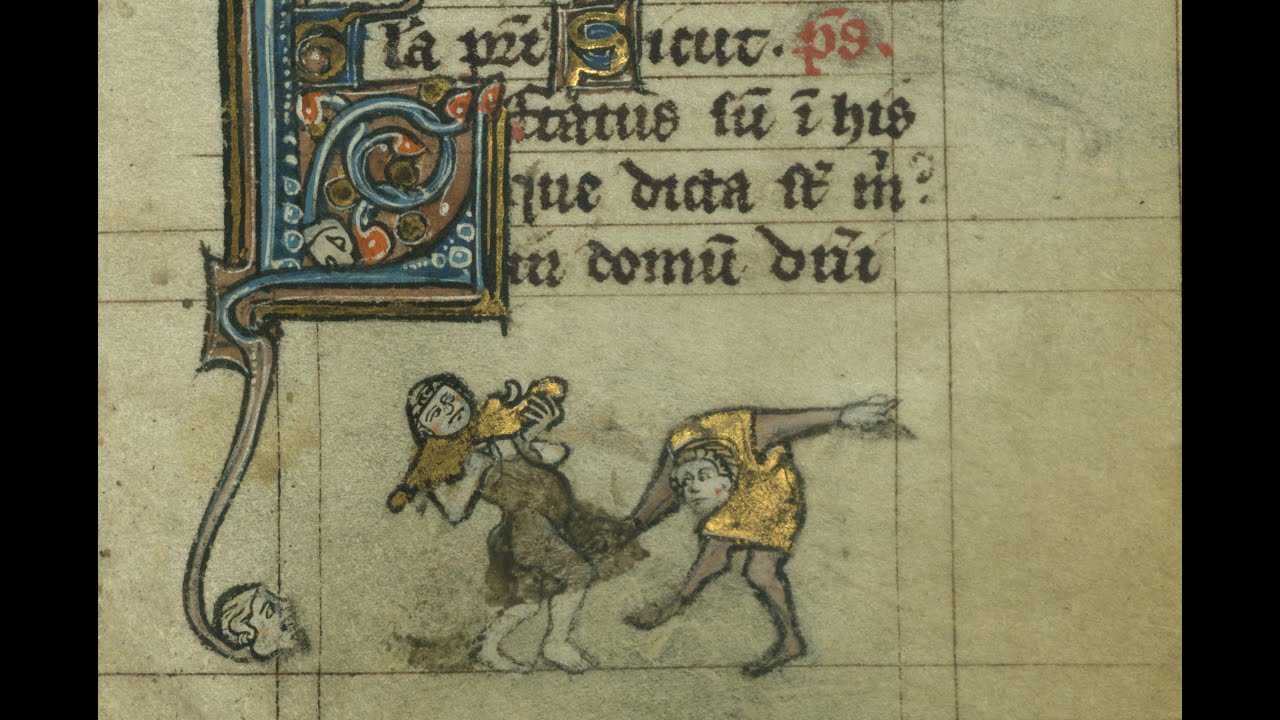 Gl'a pr̄i Sicut. p̄s.
Letatus sū ī his
que dicta st̄ m̄:
in domū dn̄i